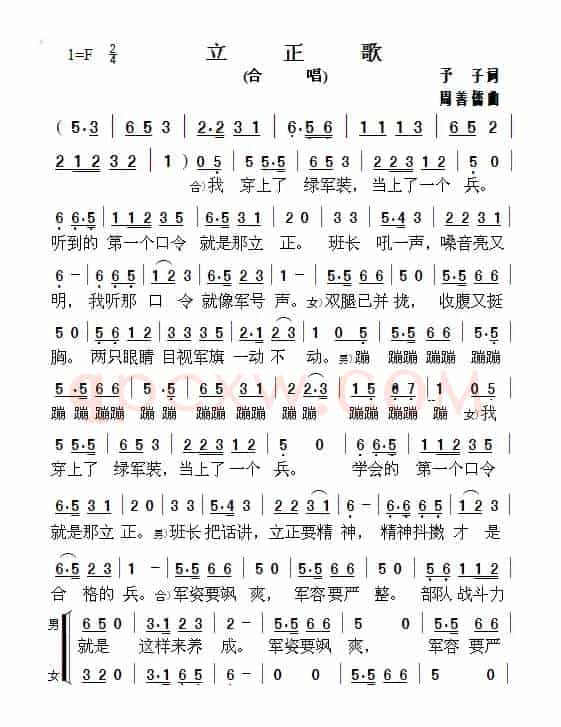 立 正 歌
1=F 2/4
(合 唱)
予 子 词
周善儒 曲
( 5·3 | 6 5 3 | 2·2 3 1 | 6·5 6 | 1 1 1 3 | 6 5 3 | 5·2 |
2 1 2 3 2 | 1 ) 0 5 | 5 5·5 | 6 5 6 6 | 1·1 | 2 2 3 1 2 | 5 0 |
合)我 穿上了 绿军装,当上了一个 兵。
6 6·5 | 1 1 2 3 5 | 6·5 3 1 | 2 0 0 | 3 2 | 5·4 3 | 2 2 3 1 |
听到的 第一个口令 就是那立 正。 班长 吼一声,嗓音亮又
6 - | 6 6·5 | 1 2 3 | 6·5 2 3 | 5 0 | 5·5 6 6 | 5 0 | 6·5 2 3 |
明,我听那 口 令 就像军号 声。女)双腿已并 拢, 收腹又挺
5 0 | 5·5 6 1 | 3 3 3 5 | 2·1 2 3 | 1 0 5 | 5·5 6 6 | 5·5 6 6 |
胸。两只眼睛 目视军旗 一动 不 动。男)蹦 蹦蹦蹦蹦 蹦蹦蹦蹦
5·5 6 6 | 5·5 6 6 | 6·5 3 1 | 2 2·3 | 1 5 6 7 | 1 0 5 |
蹦蹦蹦蹦 蹦蹦蹦蹦 蹦蹦蹦蹦 蹦蹦蹦 蹦蹦蹦蹦 蹦 女)我
5 5·5 | 6 5 6 6 | 1·1 | 2 2 3 1 2 | 5 0 | 6 6·5 | 1 1 2 3 5 |
穿上了 绿军装,当上了一个 兵。 学会的 第一个口令
6·5 3 1 | 2 0 | 3 3 2 | 5·4 3 | 2·1 2 3 | 6 - | 6·6 6 5 | 1 2 3 |
就是那立 正。男)班长把话讲,立正要精 神,精神抖擞 才 是
6·5 2 3 | 1 - | 5·5 6 6 | 5 0 | 5·5 2 3 | 1 0 | 3 3 5 2 3 |
合 格的 兵。合)军姿要飒 爽, 军容要严 整。 部队战斗力
男 6 5 0 | 3·1 2 3 | 2 - | 5·5 6 6 | 5 0 | 5·5 2 3 |
就是 这样来养 成。 军姿要飒 爽, 军容 要严
女 6 5 0 | 3·1 2 3 | 2 - | 0 0 | 5·5 6 6 | 5 0 |
qpcxw.COM